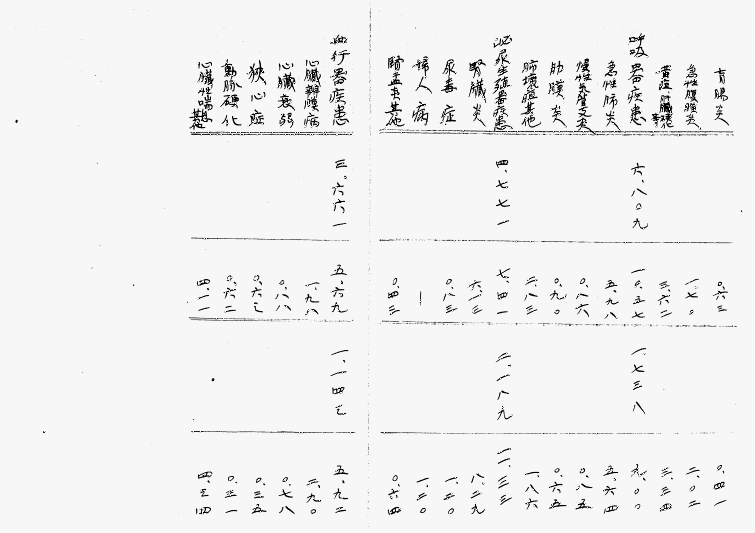 盲腸炎 〇.六三 〇.四一
急性腹膜炎 一.七〇 二.〇二
黄疸、肝臓 三.六二 三.三四
呼吸器疾患 六.八〇九 一〇.五七 一.七三八 九.〇〇
急性肺炎 五.九八 五.六四
慢性気管支炎 〇.八六 〇.八五
肋膜炎 〇.九〇 〇.六五
肺壊疽其他 二.八三 一.八六
泌尿生殖器疾患 四.七七一 七.四一 二.一八九 一一.三三
腎臓炎 六.一三 八.二九
尿毒症 〇.八三 一.二〇
婦人病 一 一.二〇
腎盂炎其他 〇.四三 〇.六四
血行器疾患 三.六六一 五.六九 一.一四三 五.九二
心臓弁膜病 一.九八 二.九〇
心臓衰弱 〇.八八 〇.七八
狭心症 〇.六三 〇.三五
動脈硬化 〇.六二 〇.三一
心臓性喘息其他 四.一一 四.三四